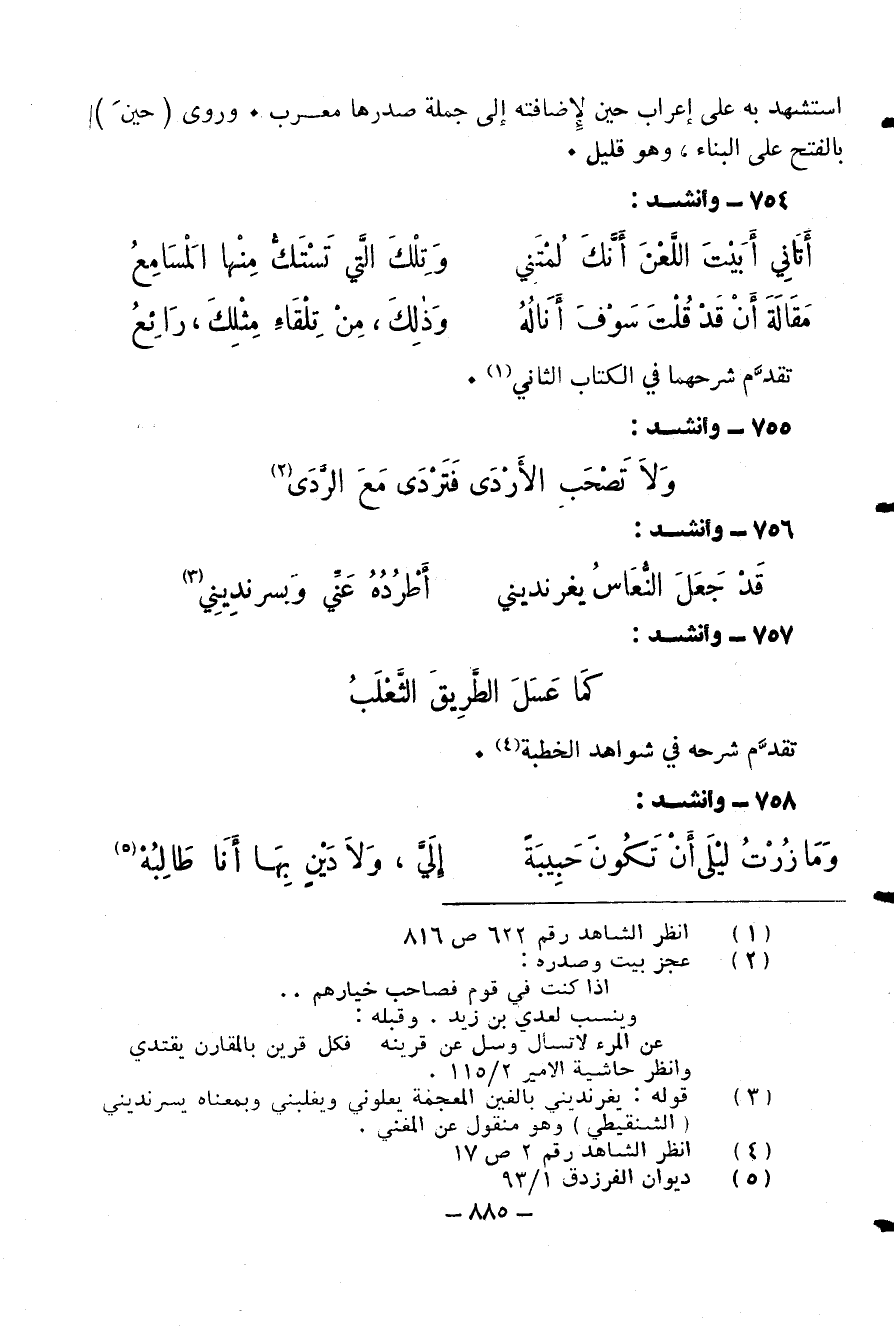 استشهد به على إعراب حين لإضافته إلى جملة صدرها معــرب ٠ وروى ( حينَ )
بالفتح على البناء ، وهو قليل ٠
٧٥٤ ــ وأنشــد :
أَتَانِي أَبَيْتَ اللَّعْنَ أَنَّكَ لُمْتَنِي وَتِلْكَ الَّتِي تَسْتَكُّ مِنْها الْمَسَامِعُ
مَقَالَةَ أَنْ قَدْ قُلْتَ سَوْفَ أَنَالُهُ وَذٰلِكَ ، مِنْ تِلْقَاءِ مِثْلِكَ ، رَائِعُ
تقدَّم شرحهما في الكتاب الثاني(١) ٠
٧٥٥ ــ وأنشــد :
وَلاَ تَصْحَبِ الأَرْدَى فَتَرْدَى مَعَ الرَّدَى(٢)
٧٥٦ ــ وأنشــد :
قَدْ جَعَلَ النُّعَاسُ يغرنديني أَطْرُدُهُ عَنِّي وَيسرنْدِينِي(٣)
٧٥٧ ــ وأنشــد :
كَمَا عَسَلَ الطَّرِيقَ الثَّعْلَبُ
تقدَّم شرحه في شواهد الخطبة(٤) ٠
٧٥٨ ــ وأنشــد :
وَمَا زُرْتُ لَيْلَى أَنْ تَكُونَ حَبِيبَةً إِلَيَّ ، وَلاَ دَيْنٍ بِهَـا أَنَا طَالِبُهْ(٥)
(١) انظر الشاهد رقم ٦٢٢ ص ٨١٦
(٢) عجز بيت وصدره :
اذا كنت في قوم فصاحب خيارهم ..
وينسب لعدي بن زيد . وقبله :
عن المرء لاتسأل وسل عن قرينه فكل قرين بالمقارن يقتدي
وانظر حاشية الامير ١١٥/٢ .
(٣) قوله : يغرنديني بالغين المعجمة يعلوني ويغلبني وبمعناه يسرنديني
( الشنقيطي ) وهو منقول عن المغني .
(٤) انظر الشاهد رقم ٢ ص ١٧
(٥) ديوان الفرزدق ٩٣/١
— ٨٨٥ —